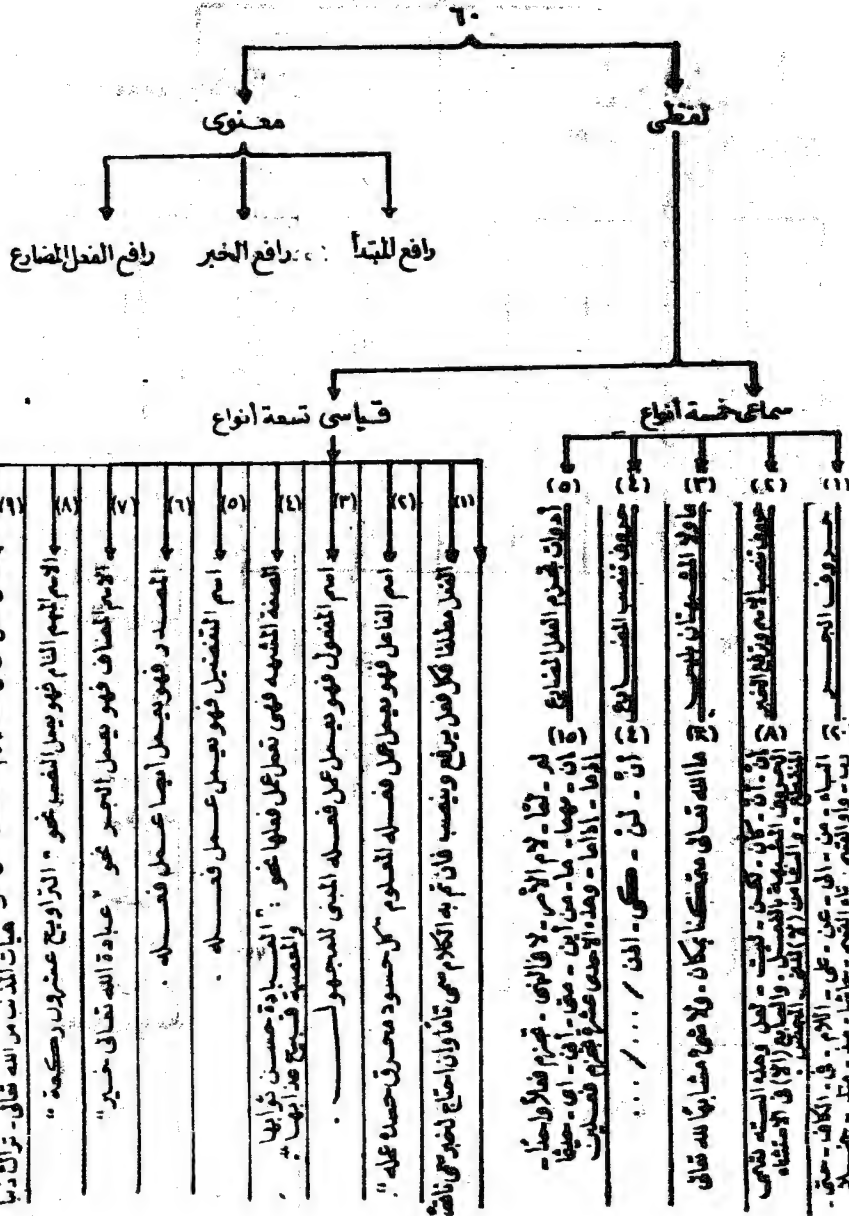 ٦٠
لفظى
معنوى
رافع المبتدأ
رافع الخبر
رافع الفعل المضارع
سماعى خمسة أنواع
قياسى تسعة أنواع
(١)
حروف الجر
(٢٠)
الباء - من - الى - عن - على - اللام - فى - الكاف - حتى -
(٢)
حروف تنصب الاسم وترفع الخبر
(٨)
إنّ - أنّ - كأن - لكن - ليت - لعل وهذه الستة تسمى
الحروف المشبهة بالفعل - والسابع (الا) فى الاستثناء
المنقطع - والثامن (لا) لنفى الجنس.
(٣)
ما ولا المشبهتان بليس
(٢)
ما الله تعالى متمكنا بمكان - ولا شئ مشابها لله تعالى
(٤)
حروف تنصب المضارع
(٤)
أنْ - لنْ - كى - اذن / ... / ...
(٥)
أدوات تجزم الفعل المضارع
(١٥)
لم - لمّا - لام الأمر - لا فى النهى - تجزم فعلا واحدا -
ان - مهما - ما - من - أين - متى - أنى - اى - حيثما
اذما - اذاما - وهذه الاحدى عشرة تجزم فعلين
(١)
الفعل مطلقا فكل فعل يرفع وينصب فان تم به الكلام سمى تاما وان احتاج لخبر سمى ناقصًا
(٢)
اسم الفاعل فهو يعمل عمل فعله المعلوم "كل حسود محرق حسده عمله".
(٣)
اسم المفعول فهو يعمل عمل فعله المبنى للمجهول .
(٤)
الصفة المشبهه فهى تعمل عمل فعلها نحو : "العبادة حسن ثوابها
والمعصية قبيح عذابها".
(٥)
اسم التفضيل فهو يعمل عمل فعله .
(٦)
المصدر فهو يعمل أيضا عمل فعله .
(٧)
الاسم المضاف فهو يعمل الجر نحو "عبادة الله تعالى خير"
(٨)
الاسم المبهم التام فهو يعمل النصب نحو "التراويح عشرون ركعة"
(٩)
هيات المذنب من الله تعالى - تراك ذنبا